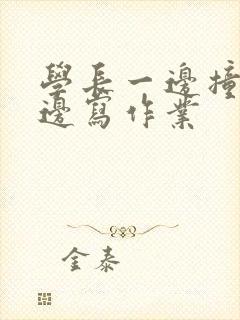 學長一邊撞
邊寫作業
金泰